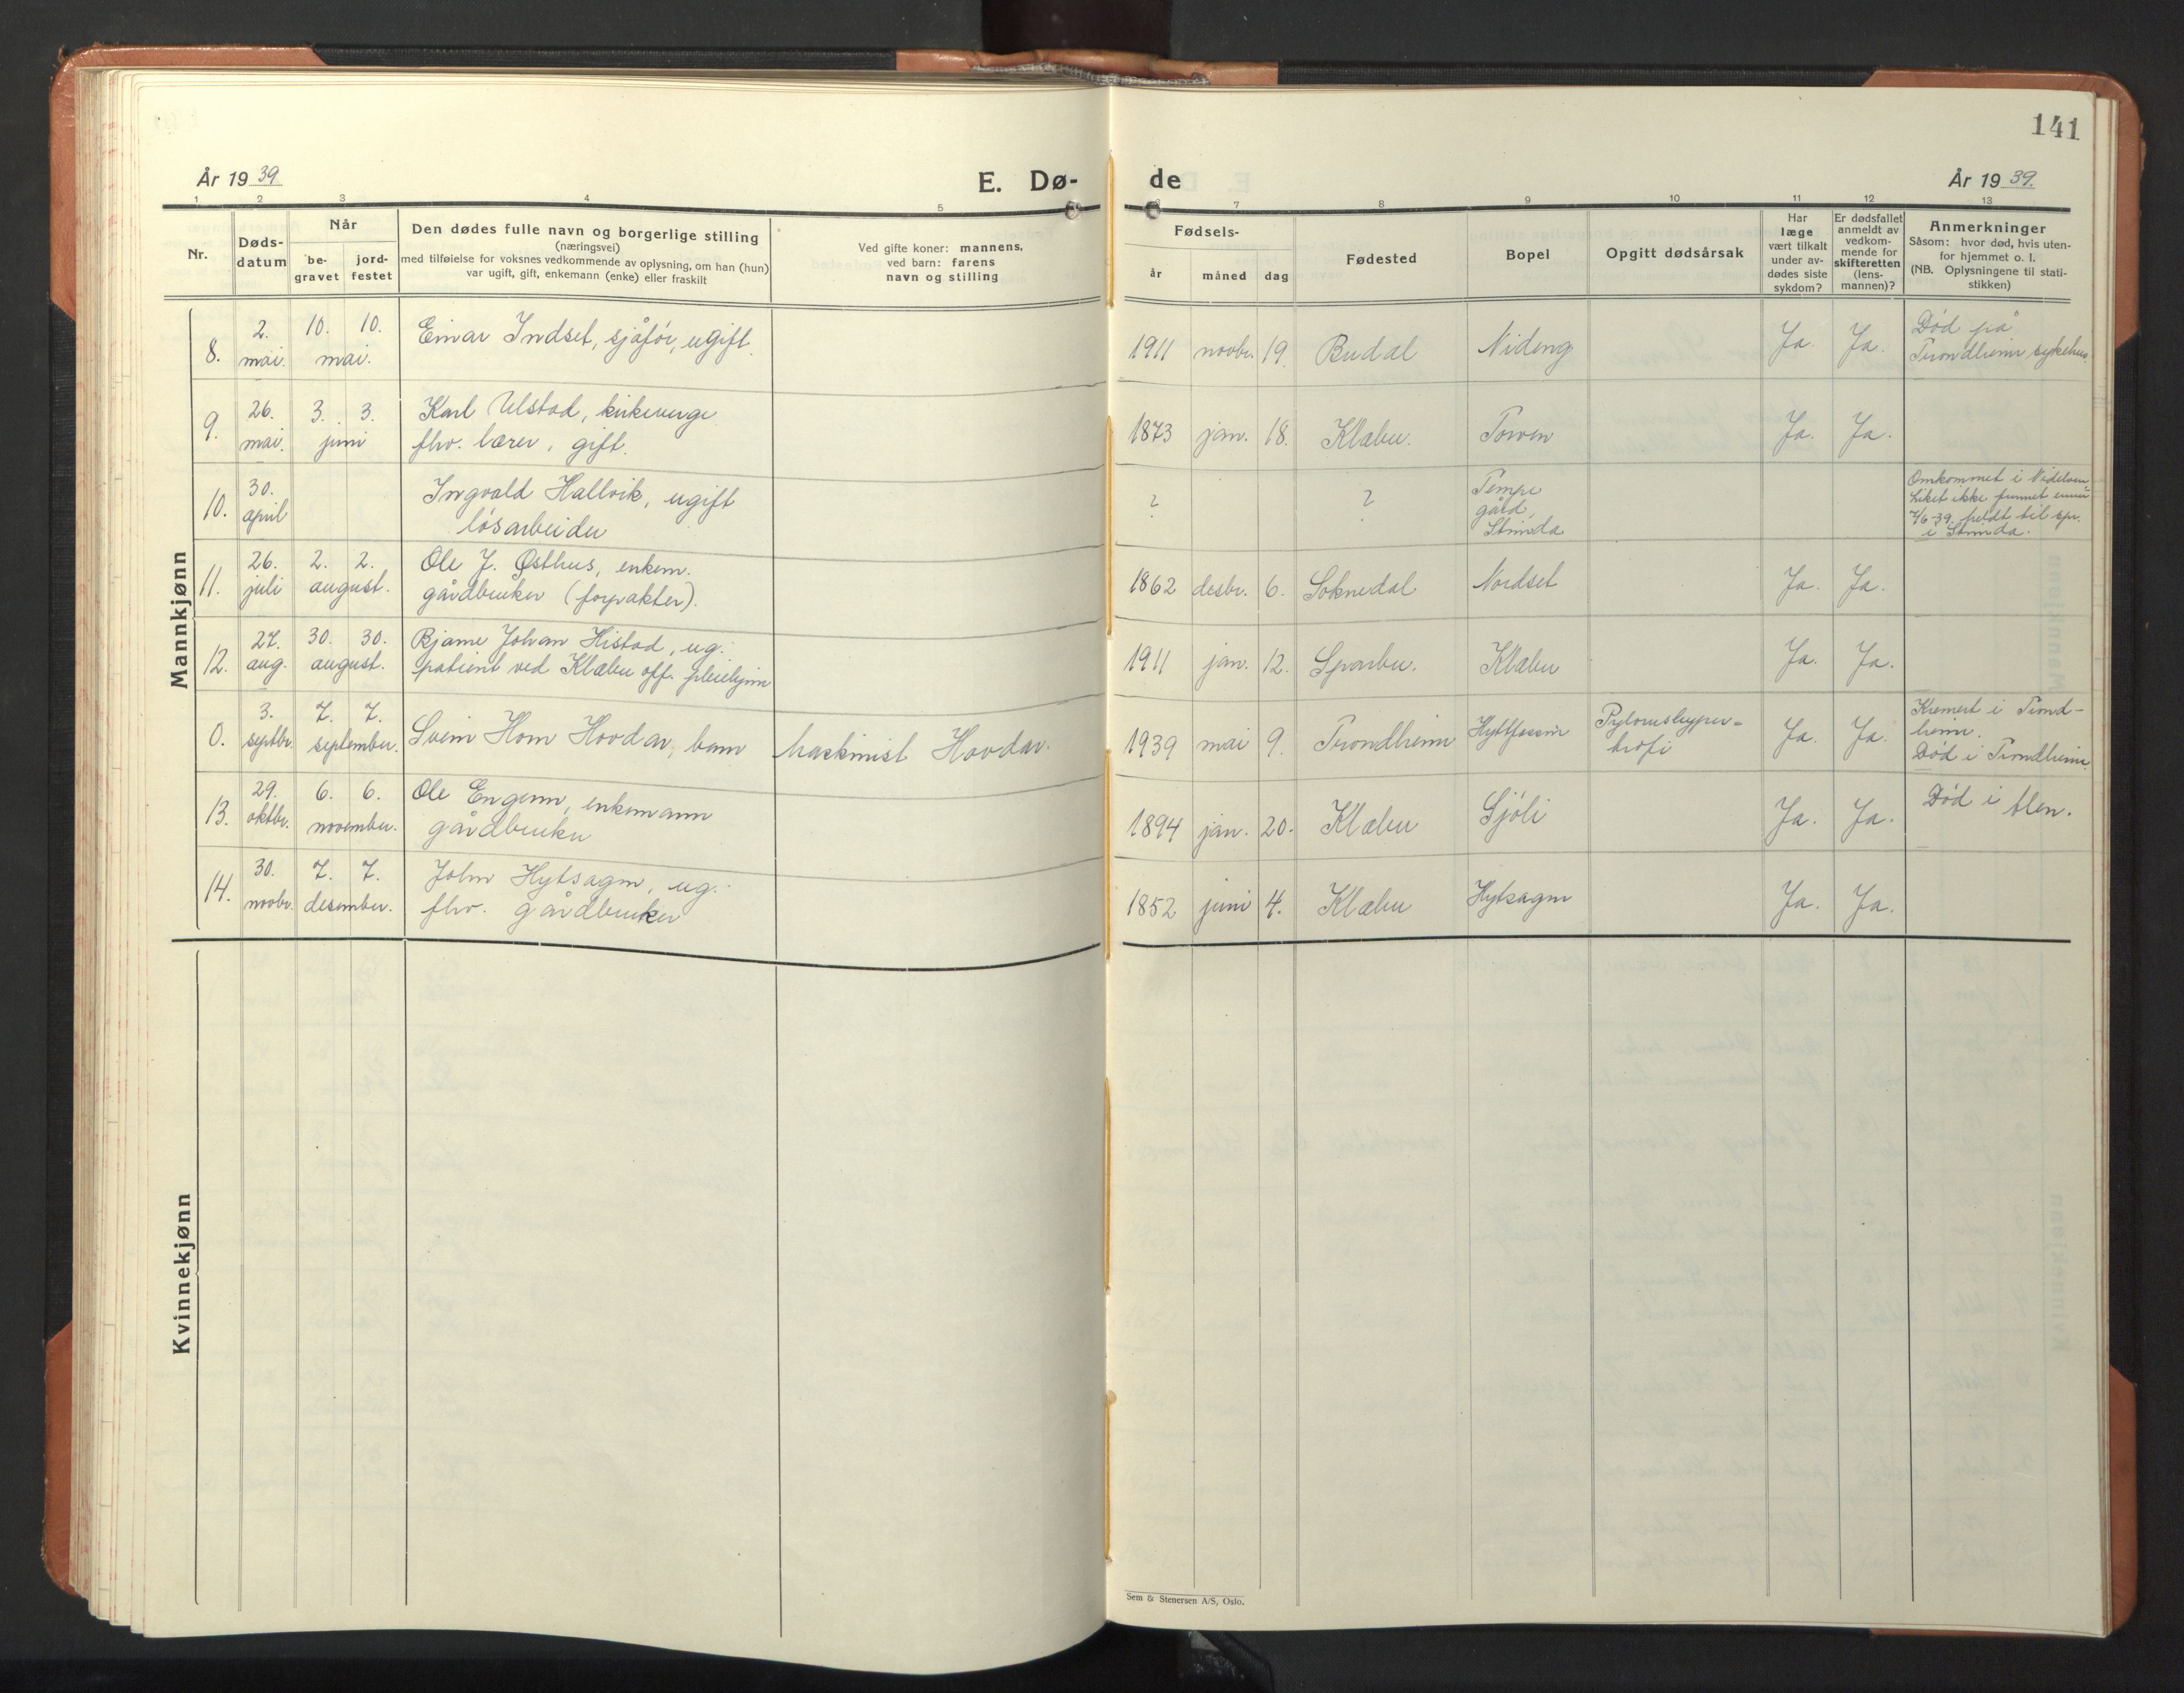 141
År 1939
E. Dø-
de
År 1939.
1 2 3 4 5 6 7 8 9 10 11 12 13
Nr.
Døds-
datum
Når
be-
gravet
jord-
festet
Den dødes fulle navn og borgerlige stilling
(næringsvei)
med tilføielse for voksnes vedkommende av oplysning, om han (hun)
var ugift, gift, enkemann (enke) eller fraskilt
Ved gifte koner: mannens,
ved barn: farens
navn og stilling
Fødsels-
år måned dag
Fødested
Bopel
Opgitt dødsårsak
Har
læge
vært tilkalt
under av-
dødes siste
sykdom?
Er dødsfallet
anmeldt av
vedkom-
mende for
skifteretten
(lens-
mannen)?
Anmerkninger
Såsom: hvor død, hvis uten-
for hjemmet o. l.
(NB. Oplysningene til stati-
stikken)
Mannkjønn
8. 2. mai. 10. 10. mai. Einar Indset, sjåfør, ugift. 1911 novbr. 19. Budal Nideng Ja. Ja. Død på
Trondheim sykehus.
9. 26. mai. 3. 3. juni Karl Ulstad, kirkeverge
fhv. lærer, gift. 1873 jan. 18. Klæbu. Torven Ja. Ja.
10. 30. april Ingvald Hallvik, ugift
løsarbeider ? ? Tempe
gård,
Strinda Omkommet i Nidelven.
Liket ikke funnet ennu
7/6-39, meldt til spr.
i Strinda.
11. 26. juli 2. 2. august. Ole J. Østhus, enkem.
gårdbruker (forpakter). 1862 desbr. 6. Soknedal Nordset Ja. Ja.
12. 27. aug. 30. 30. august. Bjarne Johan Histad, ug.
patient ved Klæbu off. pleiehjem 1911 jan. 12. Sparbu. Klæbu Ja. Ja.
0. 3. septbr. 7. 7. september. Svein Hom Hovdar, barn maskinist Hovdar. 1939 mai 9. Trondheim Hyttfossen Pylorushyper=
trofi Ja. Ja. Kremert i Trond-
heim.
Død i Trondheim.
13. 29. oktbr. 6. 6. november. Ole Engenn, enkemann
gårdbruker 1894 jan. 20. Klæbu Sjøli Ja. Ja. Død i Ålen.
14. 30. novbr. 7. 7. desember. John Hytsagen, ug.
fhv. gårdbruker 1852 juni 4. Klæbu Hytsagen Ja. Ja.
Kvinnekjønn
Sem & Stenersen A/S, Oslo.